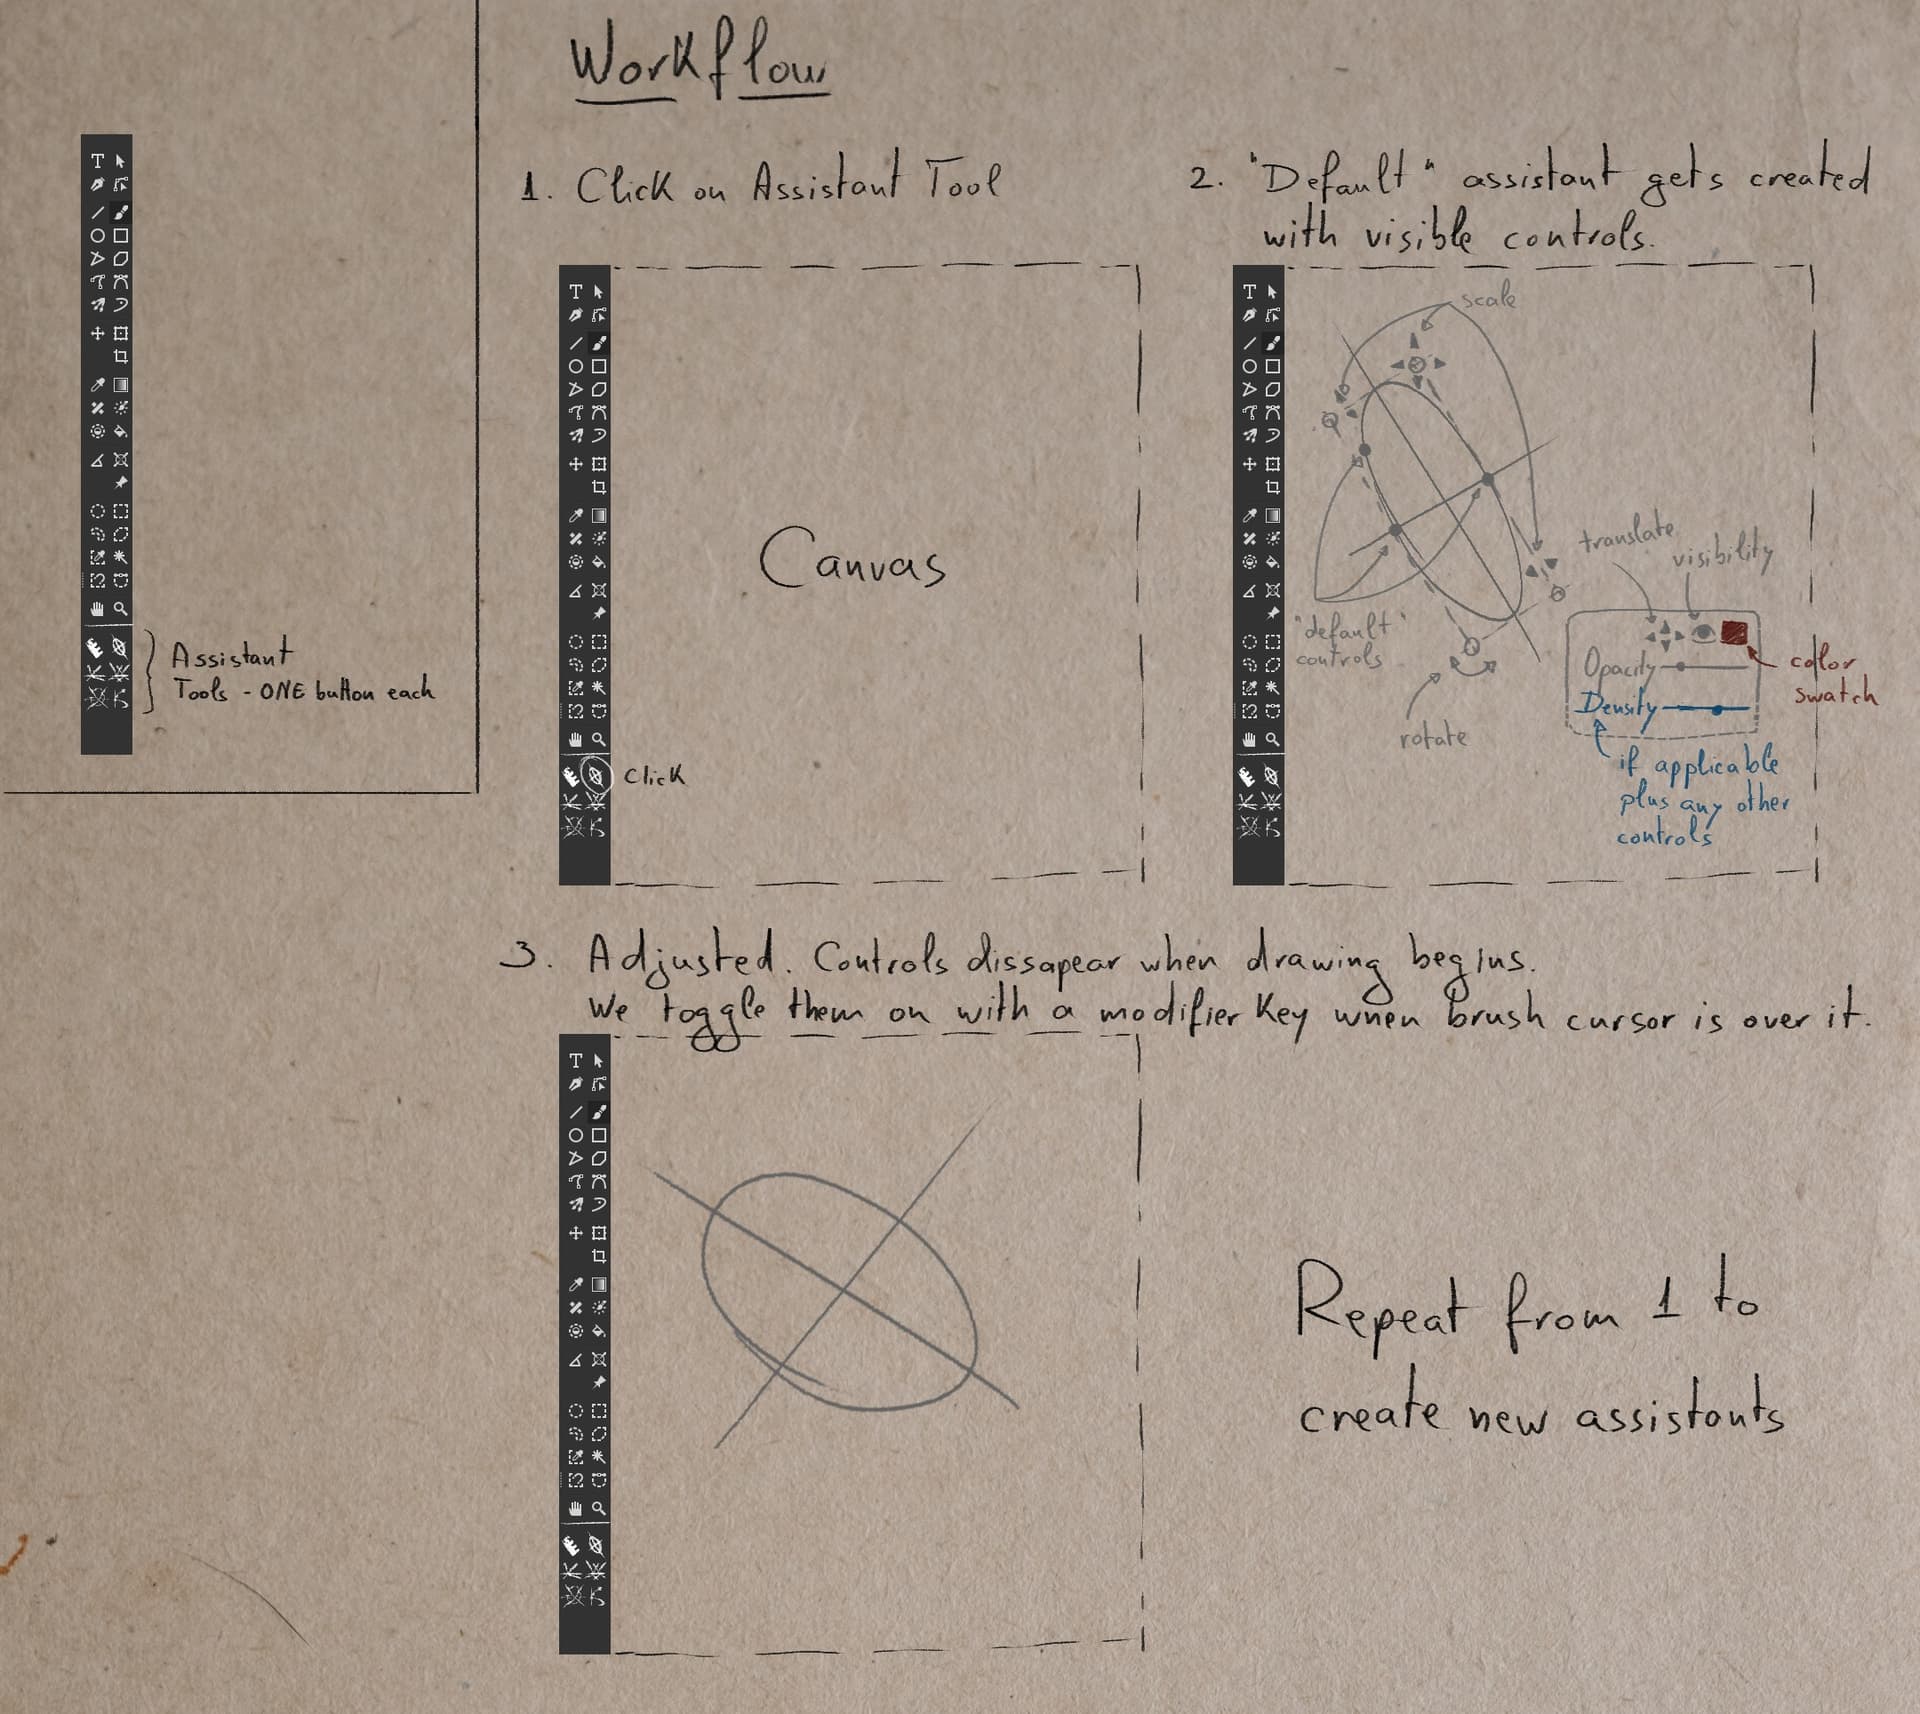 Workflow
Assistant
Tools - ONE button each
1. Click on Assistant Tool
Canvas
Click
2. "Default" assistant gets created
with visible controls.
scale
translate
visibility
"default"
controls
rotate
Opacity
Density
color
swatch
if applicable
plus any other
controls
3. Adjusted. Controls dissapear when drawing begins.
We toggle them on with a modifier key when brush cursor is over it.
Repeat from 1 to
create new assistants